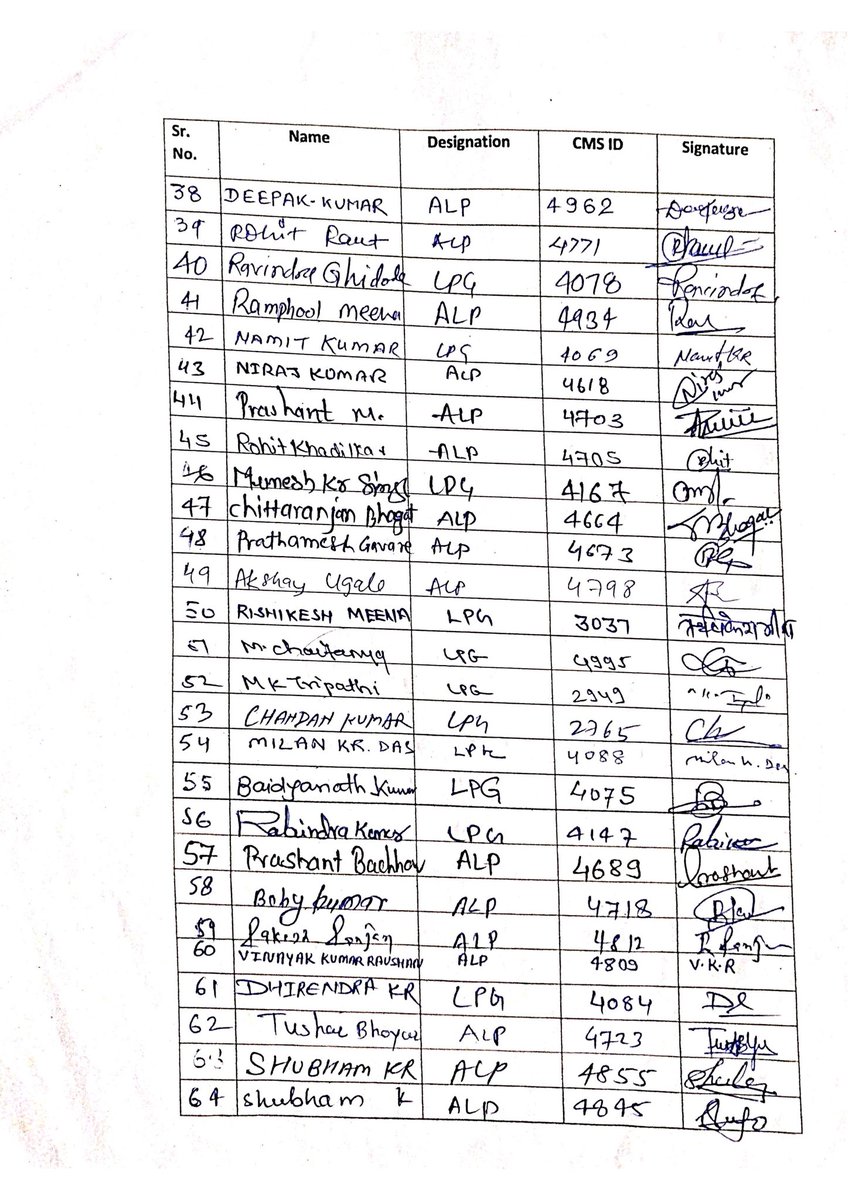 Sr. No. Name Designation CMS ID Signature
38 DEEPAK-KUMAR ALP 4962
39 ROhit Raut ALP 4771
40 Ravindra Ghidode LPG 4078
41 Ramphool meena ALP 4934
42 NAMIT KUMAR LPG 4069 Namit KR
43 NIRAJ KUMAR ALP 4618
44 Prashant M. ALP 4703
45 Rohit Khadilkar ALP 4705 Rohit
46 Mumesh Kr Singh LPG 4167
47 chittaranjan Bhagat ALP 4664 Bhagat
48 Prathamesh Gavare ALP 4673
49 Akshay Ugale ALP 4798
50 RISHIKESH MEENA LPG 3037
51 M. Chaitanya LPG 4995
52 MK Tripathi LPG 2949
53 CHANDAN KUMAR LPG 2765
54 MILAN KR. DAS LPG 4088 Milan K. Das
55 Baidyanath Kumar LPG 4075
56 Rabindra Kumar LPG 4147
57 Prashant Bachhav ALP 4689 Prashant
58 Boby kumar ALP 4718
59 Rakesh Ranjan ALP 4812
60 VINAYAK KUMAR RAUSHAN ALP 4809 V.K.R
61 DHIRENDRA KR LPG 4084
62 Tushar Bhoyar ALP 4723
63 SHUBHAM KR ALP 4855
64 shubham K ALP 4845